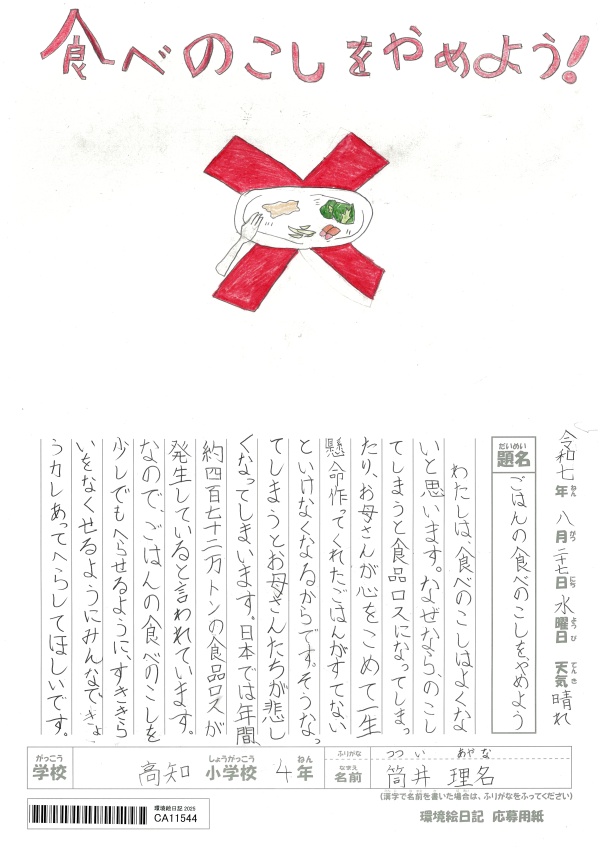 食べのこしをやめよう!
令和七年ねん 八月がつ二十七日にち 水曜日ようび 天気てんき 晴れ
だいめい
題名
ごはんの食べのこしをやめよう
わたしは、食べのこしはよくな
いと思います。なぜなら、のこし
てしまうと食品ロスになってしまっ
たり、お母さんが心をこめて一生
懸命作ってくれたごはんがすてない
といけなくなるからです。そうなっ
てしまうとお母さんたちが悲し
くなってしまいます。日本では年間
約四百七十二万トンの食品ロスが
発生していると言われています。
なので、ごはんの食べのこしを
少しでもへらせるように、すききら
いをなくせるようにみんなできょ
う力しあってへらしてほしいです。
がっこう
学校
高知 小学校しょうがっこう 4年ねん
ふりがな
つつ い あや な
なまえ
名前
筒井 理名
(漢字で名前を書いた場合は、ふりがなをふってください)
環境絵日記 2025
CA11544
環境絵日記 応募用紙